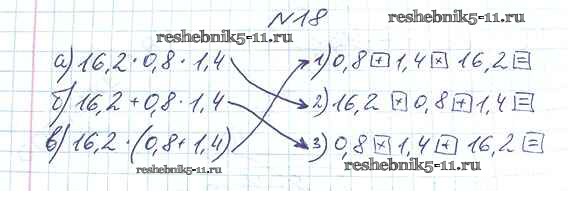 №18
reshebnik5-11.ru
reshebnik5-11.ru
а) 16,2 · 0,8 · 1,4 1) 0,8 + 1,4 × 16,2 =
б) 16,2 + 0,8 · 1,4 2) 16,2 × 0,8 + 1,4 =
в) 16,2 · (0,8 + 1,4) 3) 0,8 × 1,4 + 16,2 =
reshebnik5-11.ru
reshebnik5-11.ru